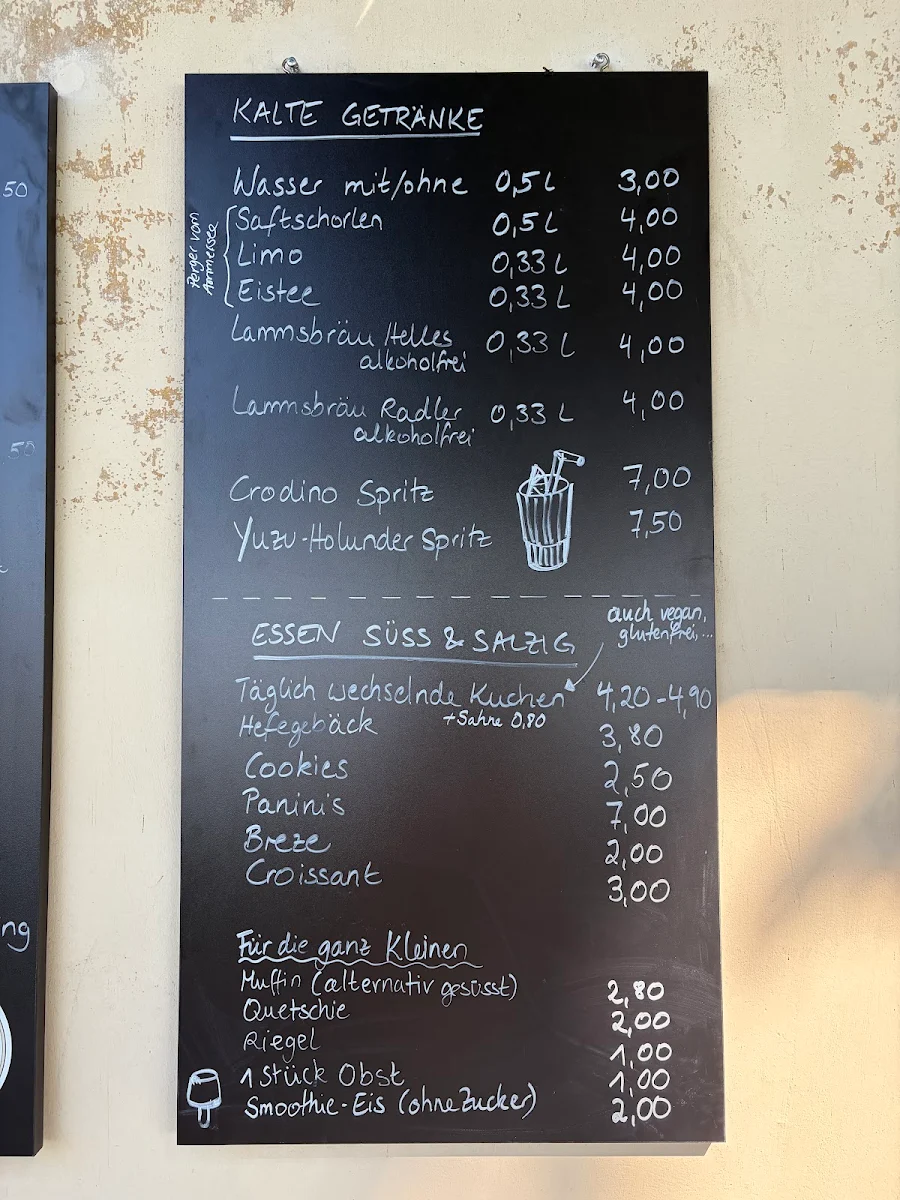 50
50
ng
KALTE GETRÄNKE
Wasser mit/ohne 0,5 L 3,00
Perger vom
Ammersee
Saftschorlen 0,5 L 4,00
Limo 0,33 L 4,00
Eistee 0,33 L 4,00
Lammsbräu Helles 0,33 L 4,00
alkoholfrei
Lammsbräu Radler 0,33 L 4,00
alkoholfrei
Crodino Spritz 7,00
Yuzu-Holunder Spritz 7,50
auch vegan,
glutenfrei,...
ESSEN SÜSS & SALZIG
Täglich wechselnde Kuchen 4,20-4,90
+Sahne 0,80
Hefegebäck 3,80
Cookies 2,50
Panini's 7,00
Breze 2,00
Croissant 3,00
Für die ganz Kleinen
Muffin (alternativ gesüsst) 2,80
Quetschie 2,00
Riegel 1,00
1 Stück Obst 1,00
Smoothie-Eis (ohne Zucker) 2,00